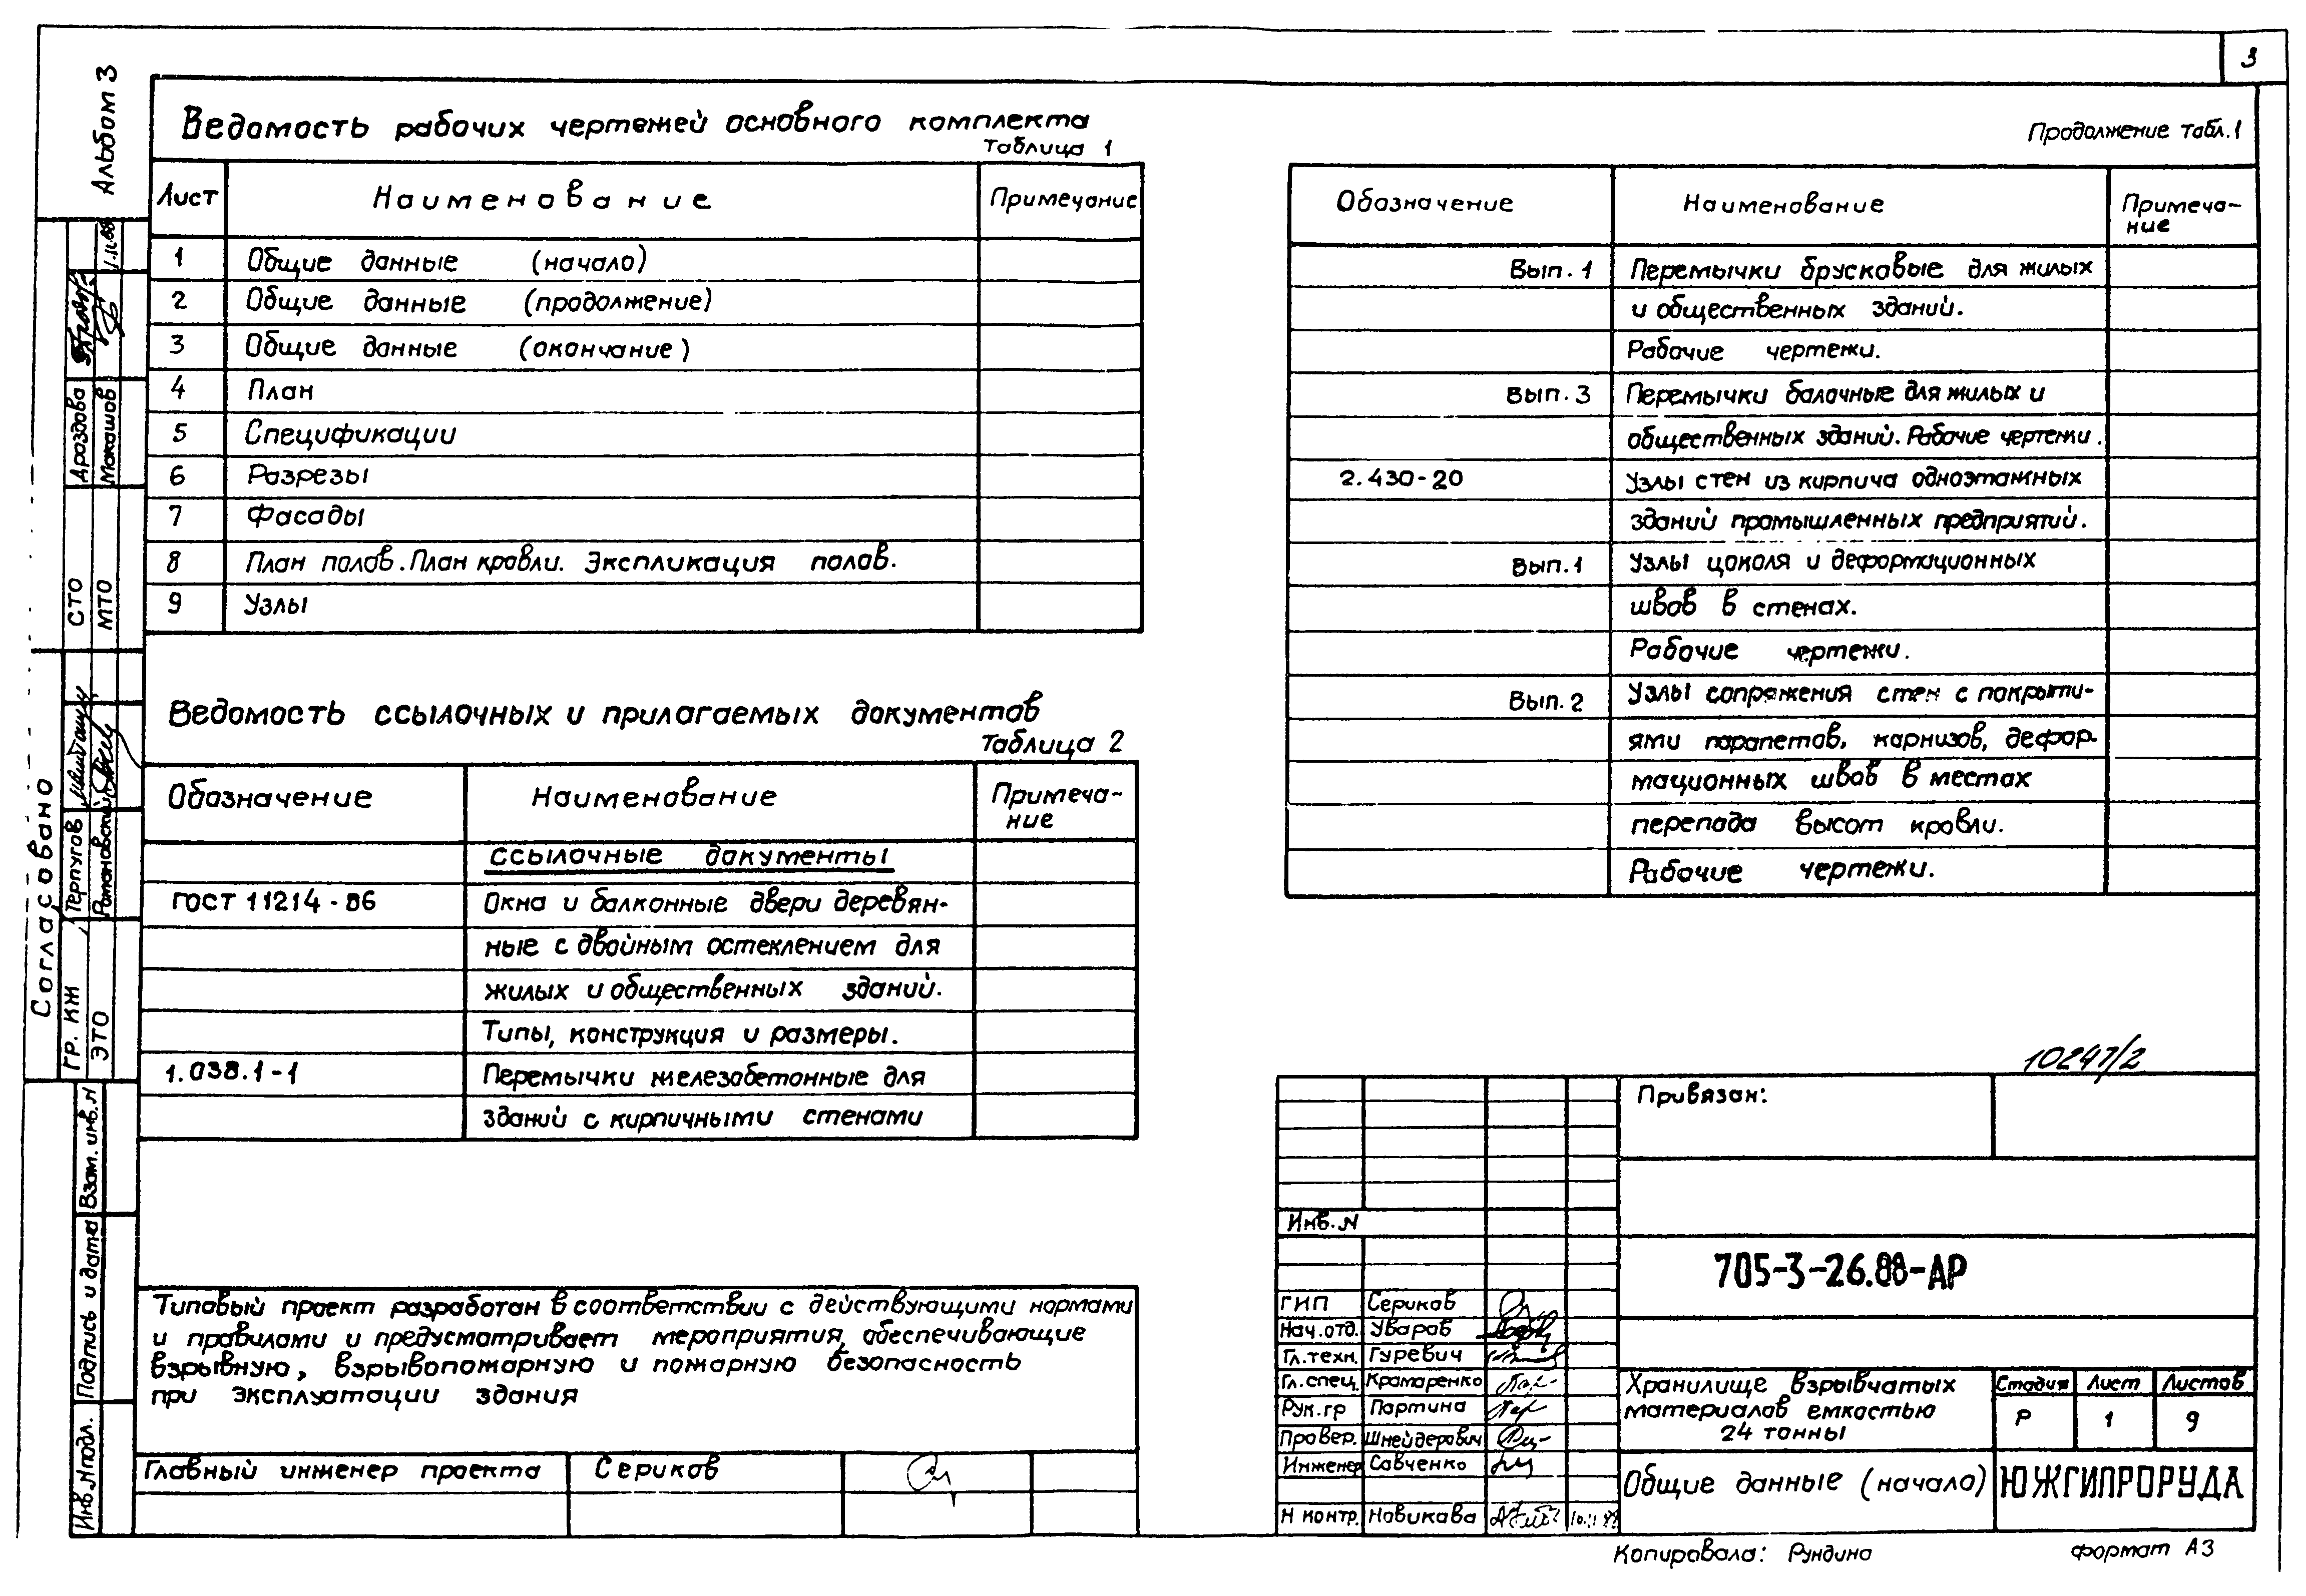 3
Альбом 3
Ведомость рабочих чертежей основного комплекта
Таблица 1
Лист Наименование Примечание
1 Общие данные (начало)
2 Общие данные (продолжение)
3 Общие данные (окончание)
4 План
5 Спецификации
6 Разрезы
7 Фасады
8 План полов. План кровли. Экспликация полов.
9 Узлы
Ведомость ссылочных и прилагаемых документов
Таблица 2
Обозначение Наименование Примеча-
ние
Ссылочные документы
ГОСТ 11214-86 Окна и балконные двери деревян-
ные с двойным остеклением для
жилых и общественных зданий.
Типы, конструкция и размеры.
1.038.1-1 Перемычки железобетонные для
зданий с кирпичными стенами
Типовый проект разработан в соответствии с действующими нормами
и правилами и предусматривает мероприятия, обеспечивающие
взрывную, взрывопожарную и пожарную безопасность
при эксплуатации здания
Главный инженер проекта Сериков
Продолжение табл.1
Обозначение Наименование Примеча-
ние
Вып. 1 Перемычки брусковые для жилых
и общественных зданий.
Рабочие чертежи.
Вып. 3 Перемычки балочные для жилых и
общественных зданий. Рабочие чертежи.
2.430-20 Узлы стен из кирпича одноэтажных
зданий промышленных предприятий.
Вып.1 Узлы цоколя и деформационных
швов в стенах.
Рабочие чертежи.
Вып.2 Узлы сопряжения стен с покрыти-
ями парапетов, карнизов, дефор-
мационных швов в местах
перепада высот кровли.
Рабочие чертежи.
10247/2
Привязан:
Инв.N
705-3-26.88-АР
ГИП Сериков
Нач.отд. Уваров
Гл.техн. Гуревич
Гл.спец. Крамаренко
Рук.гр Партина
Провер. Шнейдерович
Инженер Савченко
Н контр. Новикова
Хранилище взрывчатых
материалов емкостью
24 тонны
Стадия Лист Листов
Р 1 9
Общие данные (начало)
ЮЖГИПРОРУДА
Копировала: Рундина
формат А3
Согласовано
СТО Дроздова
МТО Мокашов
1.11.88
Гр. КЖ Терпугов
ЭТО Романовский
Взам. инв. N
Подпись и дата
Инв.N подл.